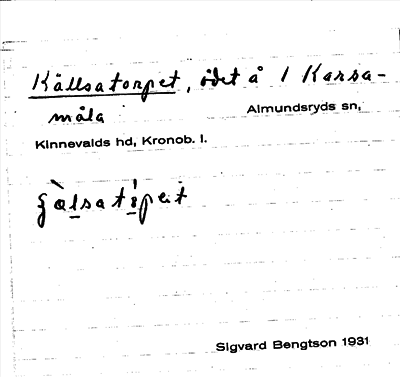 Källsatorpet, ödet å 1 Karsa-
måla
Almundsryds sn,
Kinnevalds hd, Kronob. l.
Sigvard Bengtson 1931